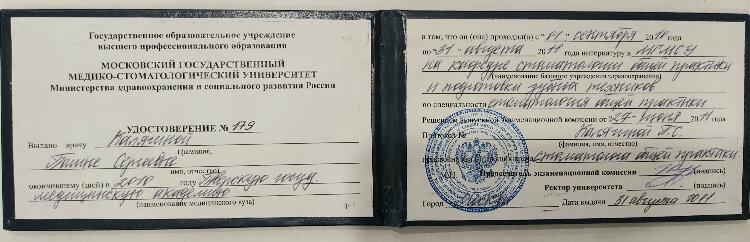 Государственное образовательное учреждение
высшего профессионального образования
МОСКОВСКИЙ ГОСУДАРСТВЕННЫЙ
МЕДИКО-СТОМАТОЛОГИЧЕСКИЙ УНИВЕРСИТЕТ
Министерства здравоохранения и социального развития России
УДОСТОВЕРЕНИЕ № 179
Выдано врачу Калягиной
(фамилия,
Полине Сергеевне
имя, отчество)
окончившему (шей) в 2010 году Тверскую госуд
медицинскую академию
(наименование медицинского вуза)
в том, что он (она) проходил(а) с "01" сентября 2010 года
по "31" августа 2011 года интернатуру в МГМСУ
на кафедре стоматологии общей практики
(наименование базового учреждения здравоохранения)
и подготовки зубных техников
по специальности стоматология общей практики
Решением выпускной экзаменационной комиссии от "27" июня 2011
Протокол № Калягиной П.С.
(фамилия, имя, отчество)
присвоена стоматолога общей практики
Председатель экзаменационной комиссии (подпись)
Ректор университета (подпись)
Город Москва Дата выдачи 31 августа 2011